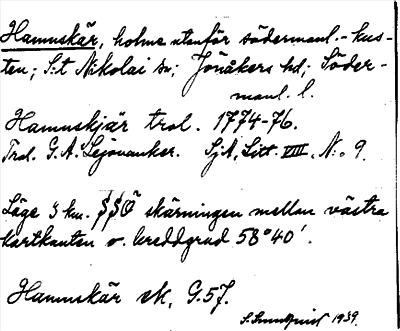 Hamnskär, holme utanför södermanl.-kus-
ten; S:t Nikolai sn; Jönåkers hd; Söder-
manl. l.
Hamnskjär trol. 1774-76.
Trol. G. A. Lejonanker. SjA, Litt. VIII, N:o 9.
Läge 3 km. SSO skärningen mellan västra
kartkanten o. breddgrad 58°40'.
Hamnskär ek, G.57.
S. Sundquist 1939.